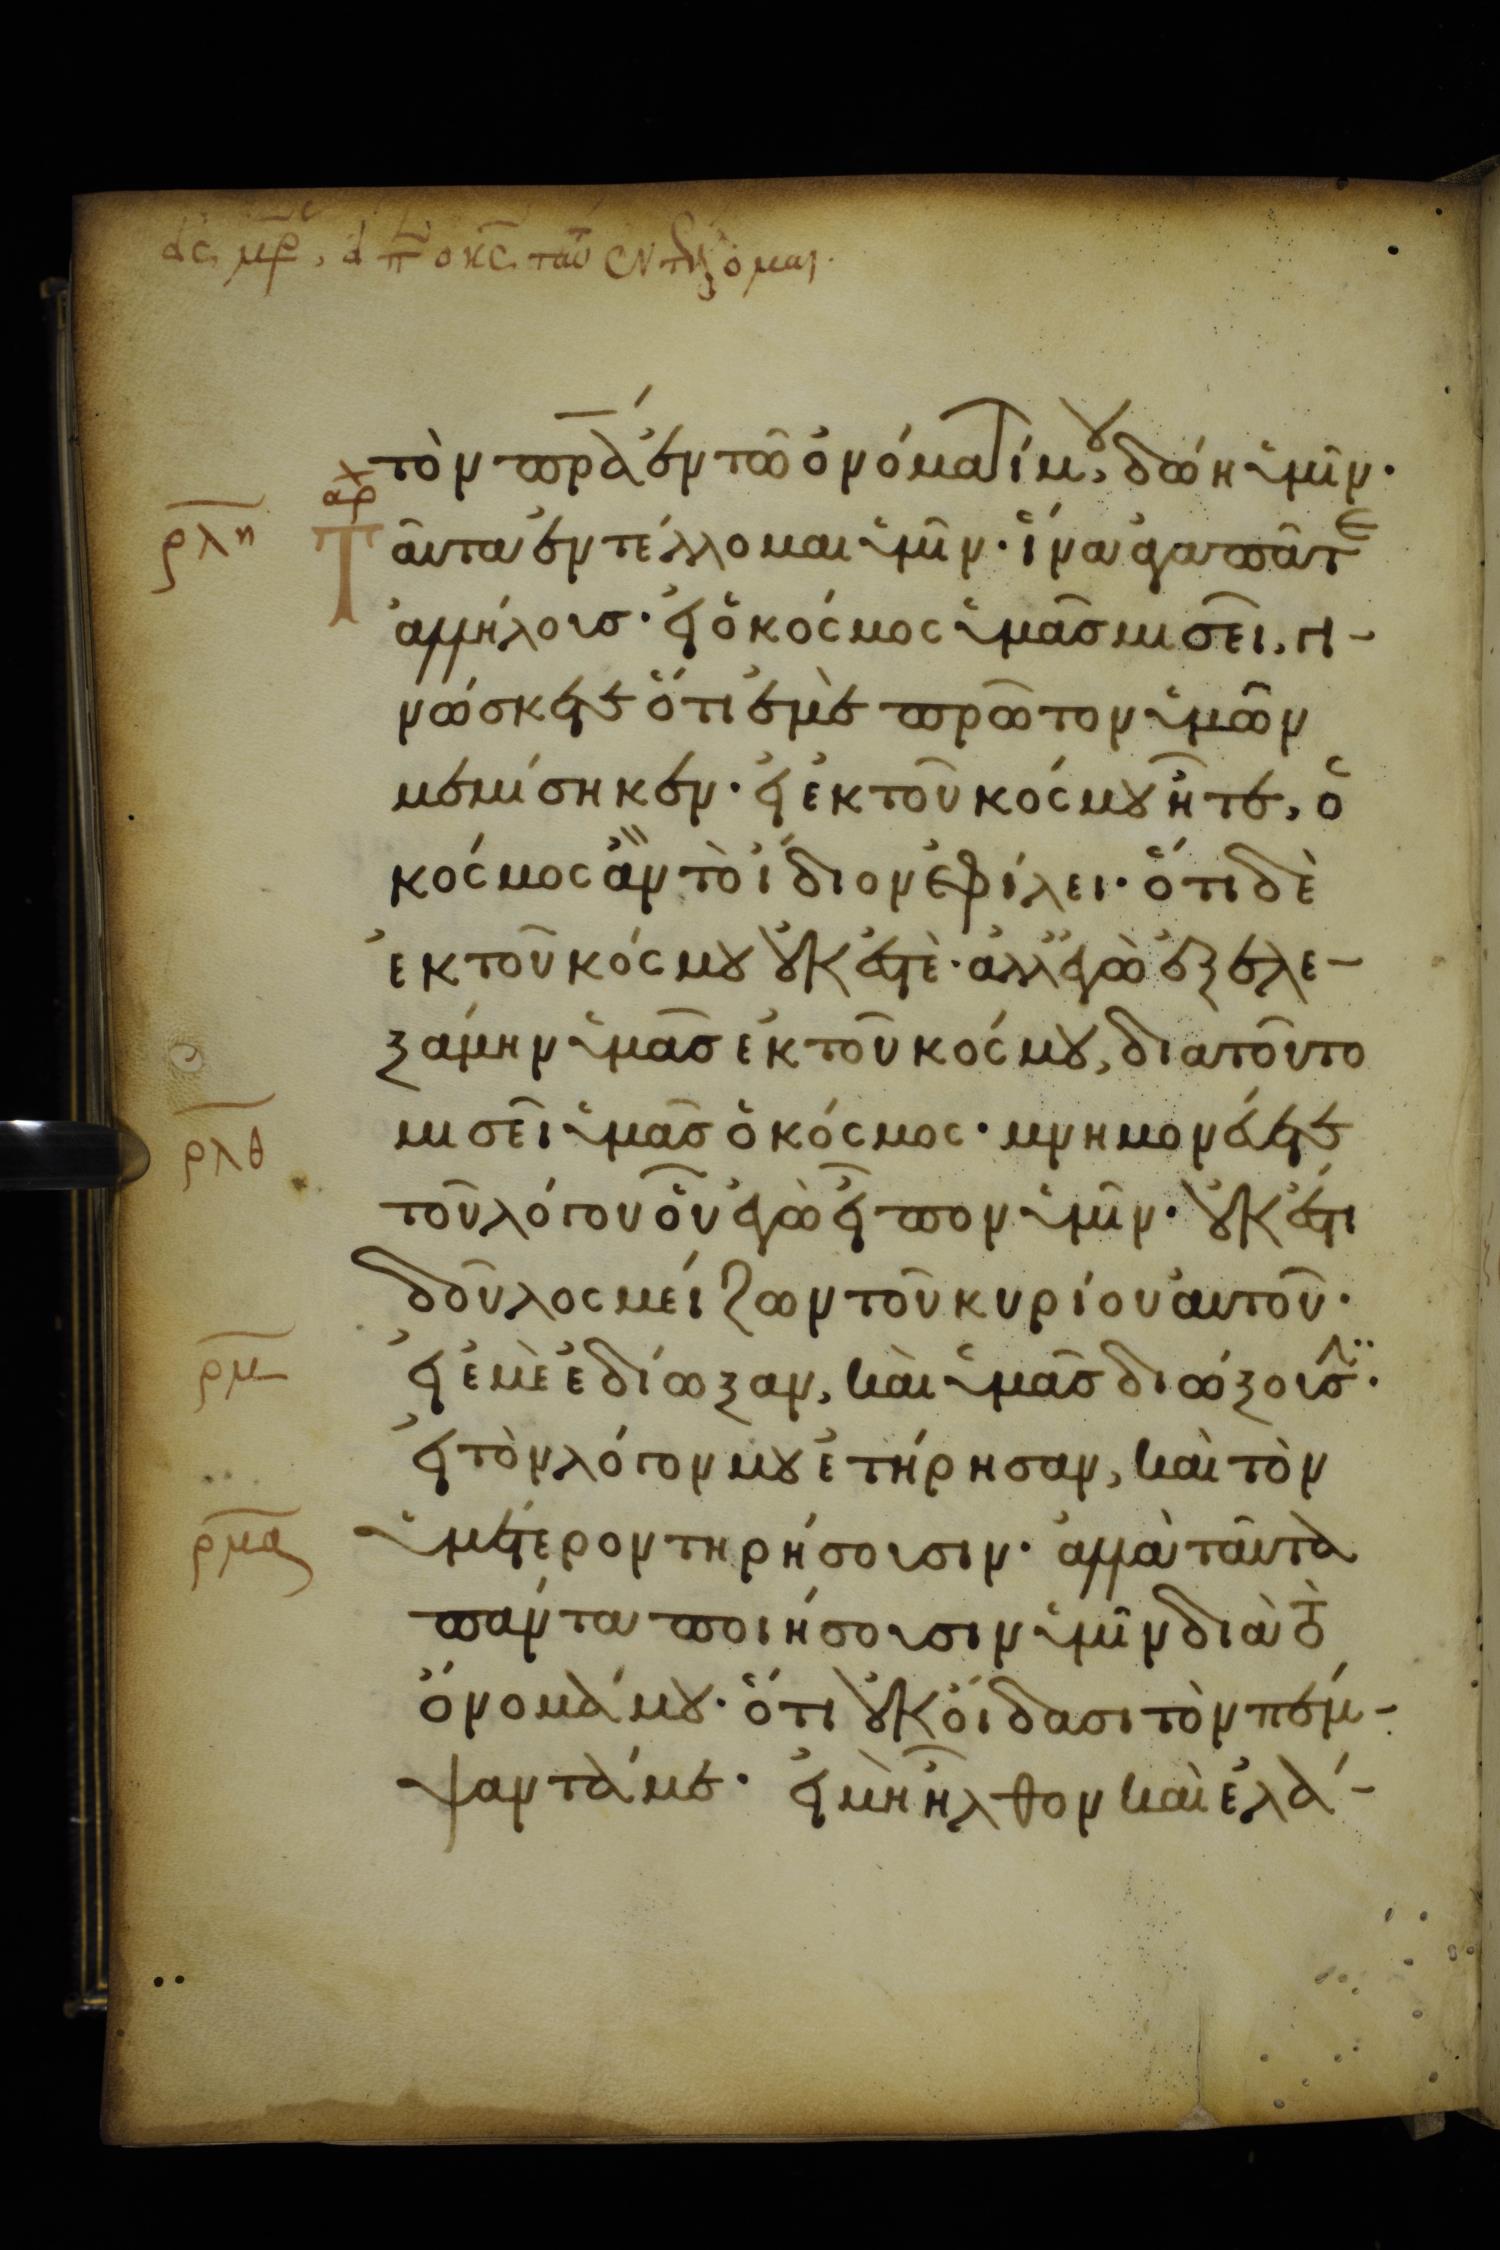 τὸν πρ̅α ἐν τῶ ὀνόματί μου, δώη ὑμῖν·
ρλη
αρχ
Ταῦτα ἐντέλλομαι ὑμῖν· ἵνα ἀγαπᾶτε
ἀλλήλους· εἰ ὁ κόσμος ὑμᾶς μισεῖ, γι-
νώσκετε ὅτι ἐμὲ πρῶτον ὑμῶν
μεμίσηκεν· εἰ ἐκ τοῦ κόσμου ἦτε, ὁ
κόσμος ἂν τὸ ἴδιον ἐφίλει· ὅτι δὲ
ἐκ τοῦ κόσμου οὐκ ἐστὲ· ἀλλ' ἐγὼ ἐξελε-
ξάμην ὑμᾶς ἐκ τοῦ κόσμου, διατοῦτο
μισεῖ ὑμᾶς ὁ κόσμος· μνημονεύετε
ρλθ
τοῦ λόγου οὗ ἐγὼ εἶπον ὑμῖν· οὐκ ἔστι
δοῦλος μείζων τοῦ κυρίου αὐτοῦ·
ρμ
εἰ ἐμὲ ἐδίωξαν, καὶ ὑμᾶς διώξουσιν·
εἰ τὸν λόγον μου ἐτήρησαν, καὶ τὸν
ρμα
ὑμέτερον τηρήσουσιν· ἀλλὰ ταῦτα
πάντα ποιήσουσιν ὑμῖν διὰ τὸ
ὄνομά μου· ὅτι οὐκ οἴδασι τὸν πέμ-
ψαντά με· εἰ μὴ ἦλθον καὶ ἐλά-